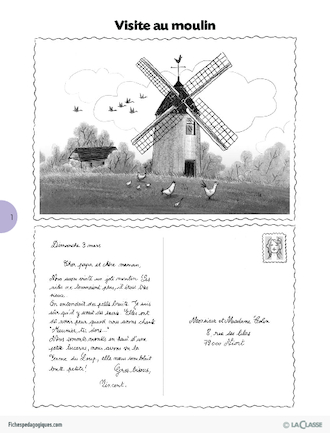 Visite au moulin
1
Dimanche 3 mars
Cher papa et chère maman,
Nous avons visité un joli moulin ! Les
ailes ne tournaient plus, il était très
vieux.
On entendait des petits bruits. Je suis
sûr qu'il y avait des souris. Elles ont
dû avoir peur quand nous avons chanté
"Meunier, tu dors..."
Nous sommes montés en haut d'une
petite lucarne, nous avons vu la
ferme du Loup, elle nous semblait
toute petite !
Gros bisous,
Vincent.
Monsieur et Madame Colin
8 rue des lilas
79000 Niort
Fichespedagogiques.com
© LACLASSE